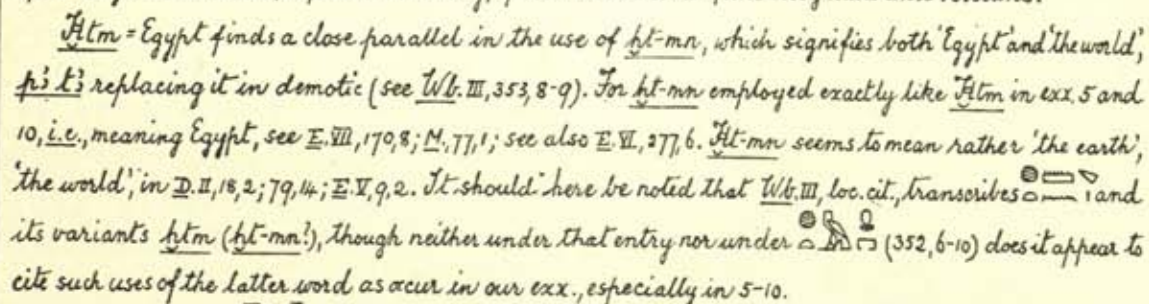 Ḫtm = Egypt finds a close parallel in the use of ḫt-mn, which signifies both 'Egypt' and 'the world',
pꜣ tꜣ replacing it in demotic (see Wb. III, 353, 8-9). For ḫt-mn employed exactly like Ḫtm in exx. 5 and
10, i.e., meaning Egypt, see E. VII, 170, 8; M. 77, 1; see also E. VI, 277, 6. Ḫt-mn seems to mean rather 'the earth',
'the world', in D. II, 18, 2; 79, 14; E. V, 9, 2. It should here be noted that Wb. III, loc. cit., transcribes and
its variants ḫtm (ḫt-mn?), though neither under that entry nor under (352, 6-10) does it appear to
cite such uses of the latter word as occur in our exx., especially in 5-10.